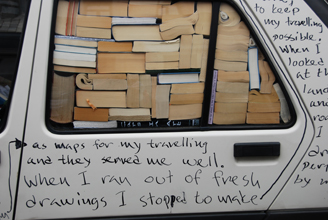 to keep
my travelling
possible.
When I
looked
at th
as maps for my travelling
and they served me well.
When I ran out of fresh
drawings I stopped to make